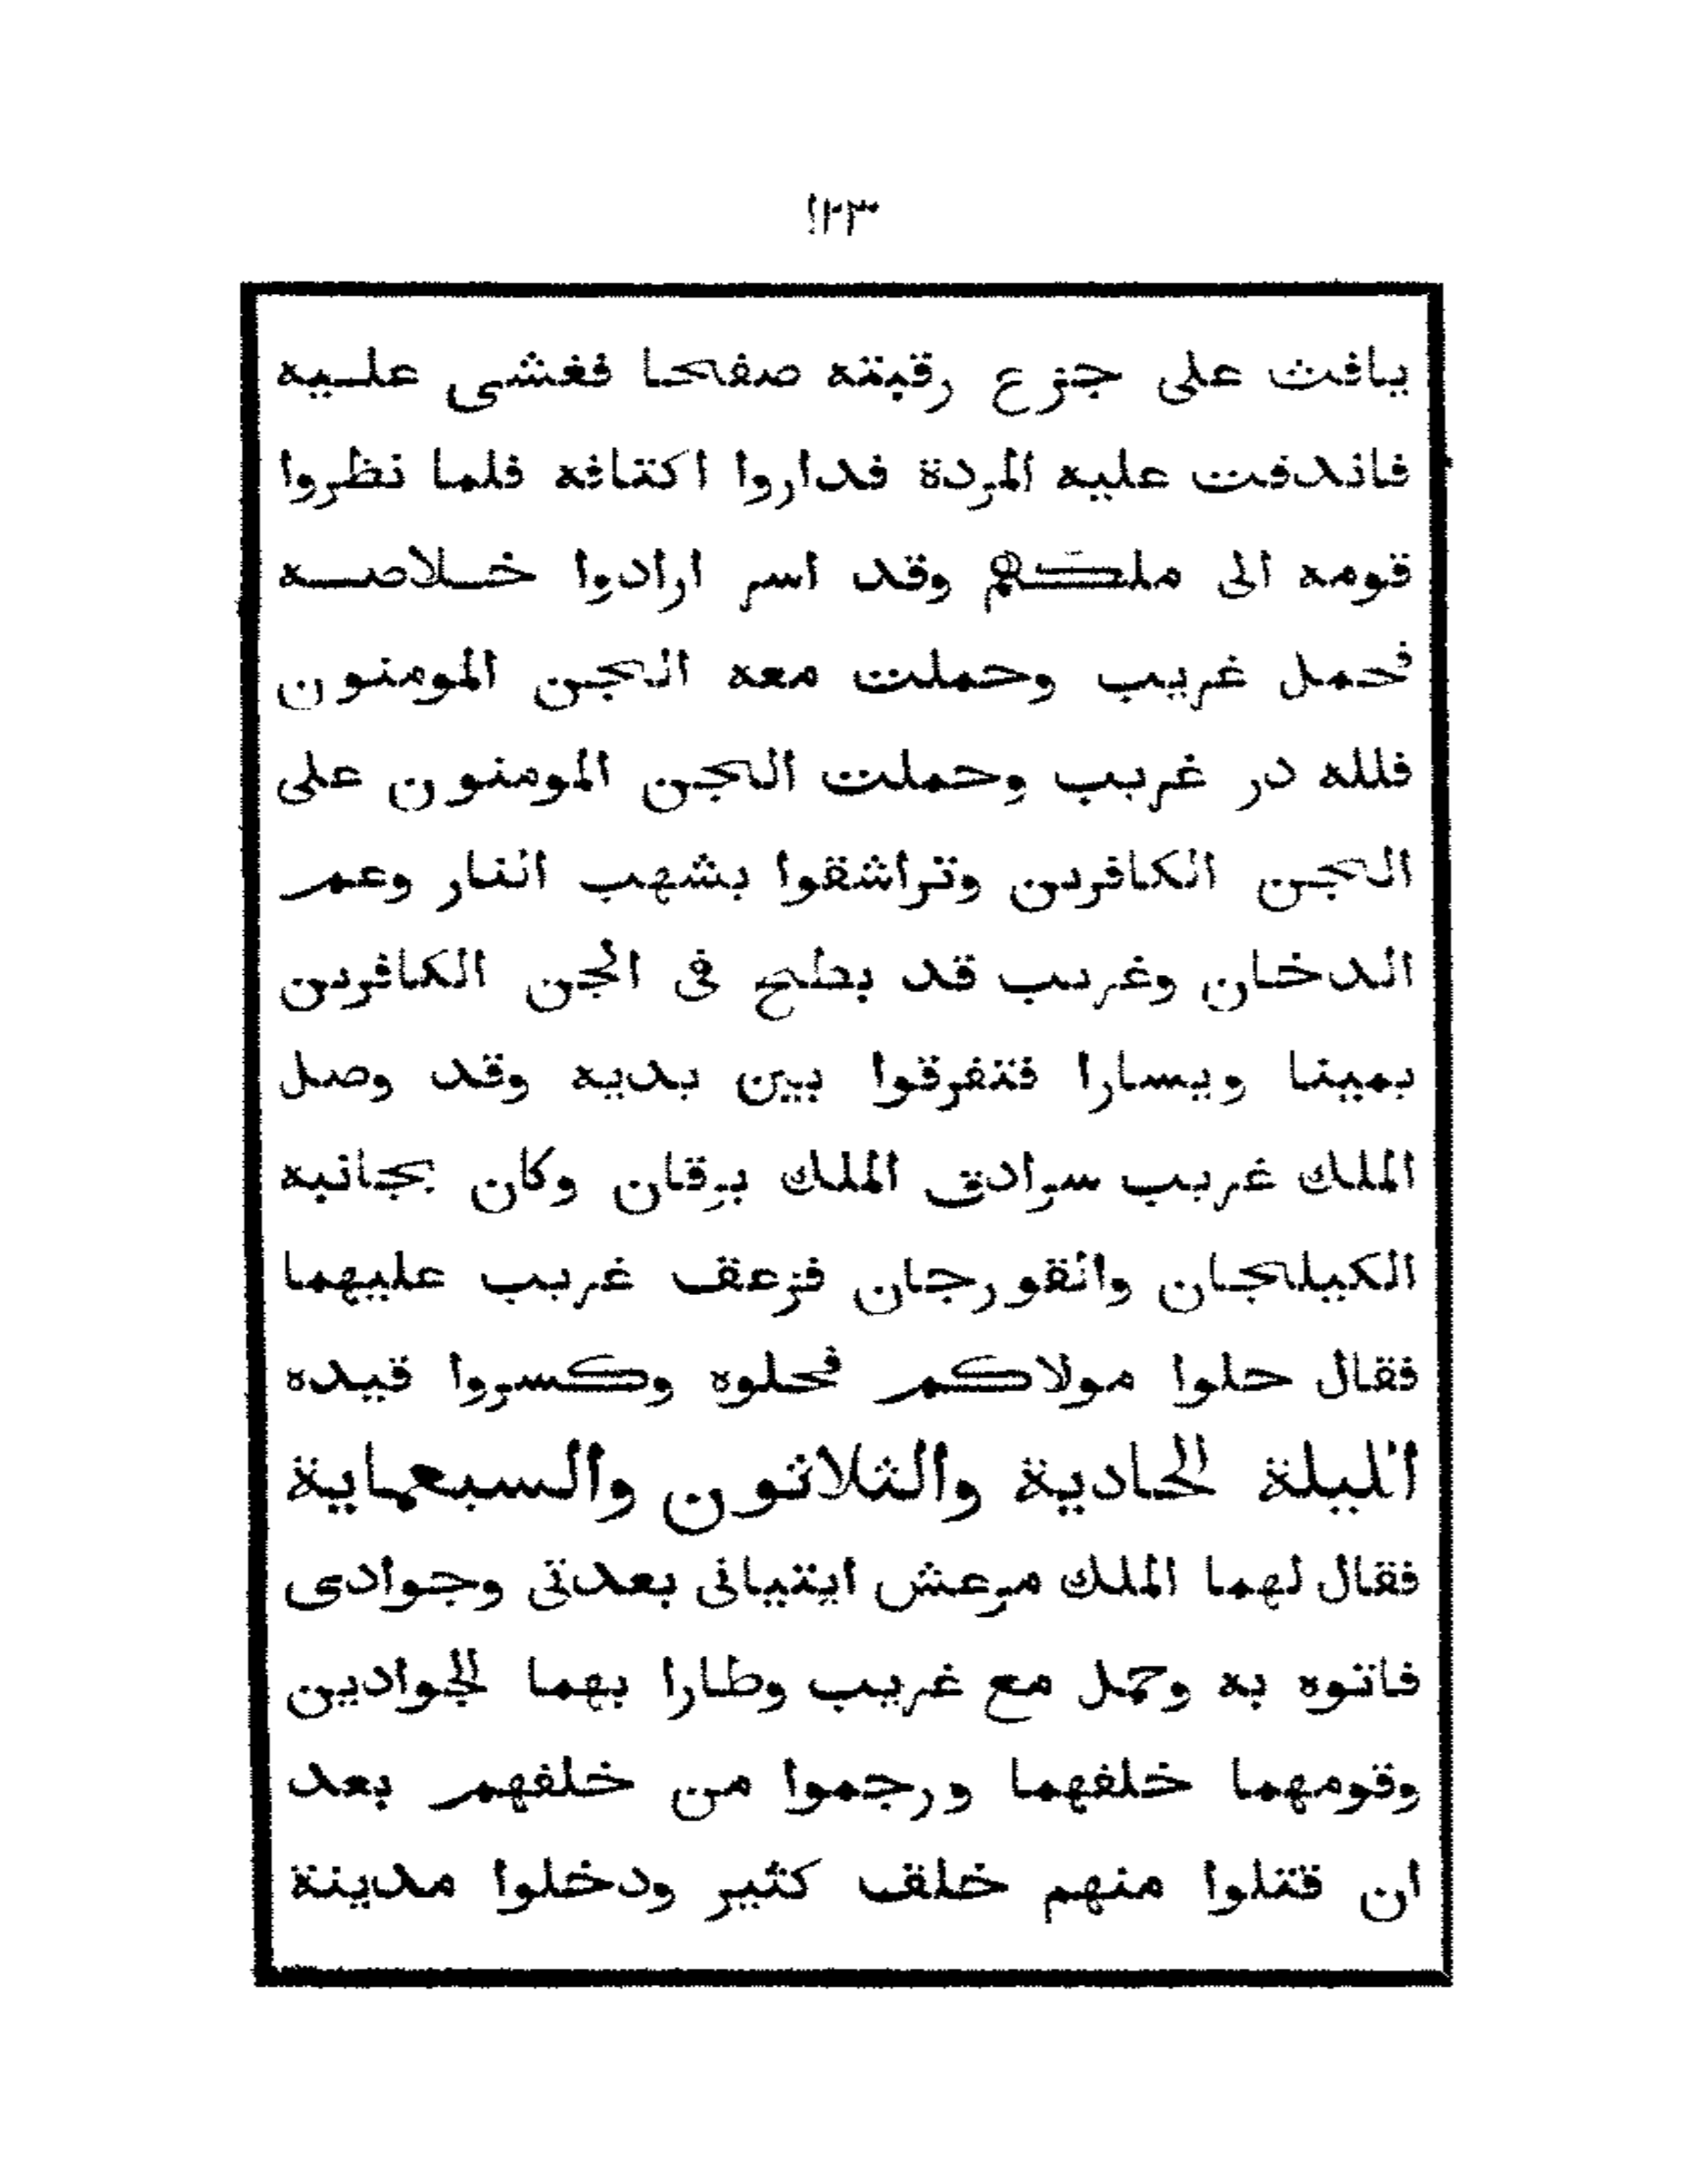 ١٢٣
يافث على جزع رقبته صفحا فغشى عليه
فاندفت عليه المردة فداروا اكتافه فلما نظروا
قومه الى ملكهم وقد اسر ارادوا خلاصه
فحمل غريب وحملت معه الجن المومنون
فلله در غريب وحملت الجن المومنون على
الجن الكافرين وتراشقوا بشهب النار وعم
الدخان وغريب قد بطح فى الجن الكافرين
يمينا ويسارا فتفرقوا بين يديه وقد وصل
الملك غريب سرادق الملك برقان وكان بجانبه
الكيلجان والقورجان فزعق غريب عليهما
فقال حلوا مولاكم فحلوه وكسروا قيده
الليلة الحادية والثلاثون والسبعماية
فقال لهما الملك مرعش ايتيانى بعدتى وجوادى
فاتوه به وحمل مع غريب وطارا بهما الجوادين
وقومهما خلفهما ورجموا من خلفهم بعد
ان قتلوا منهم خلق كثير ودخلوا مدينة